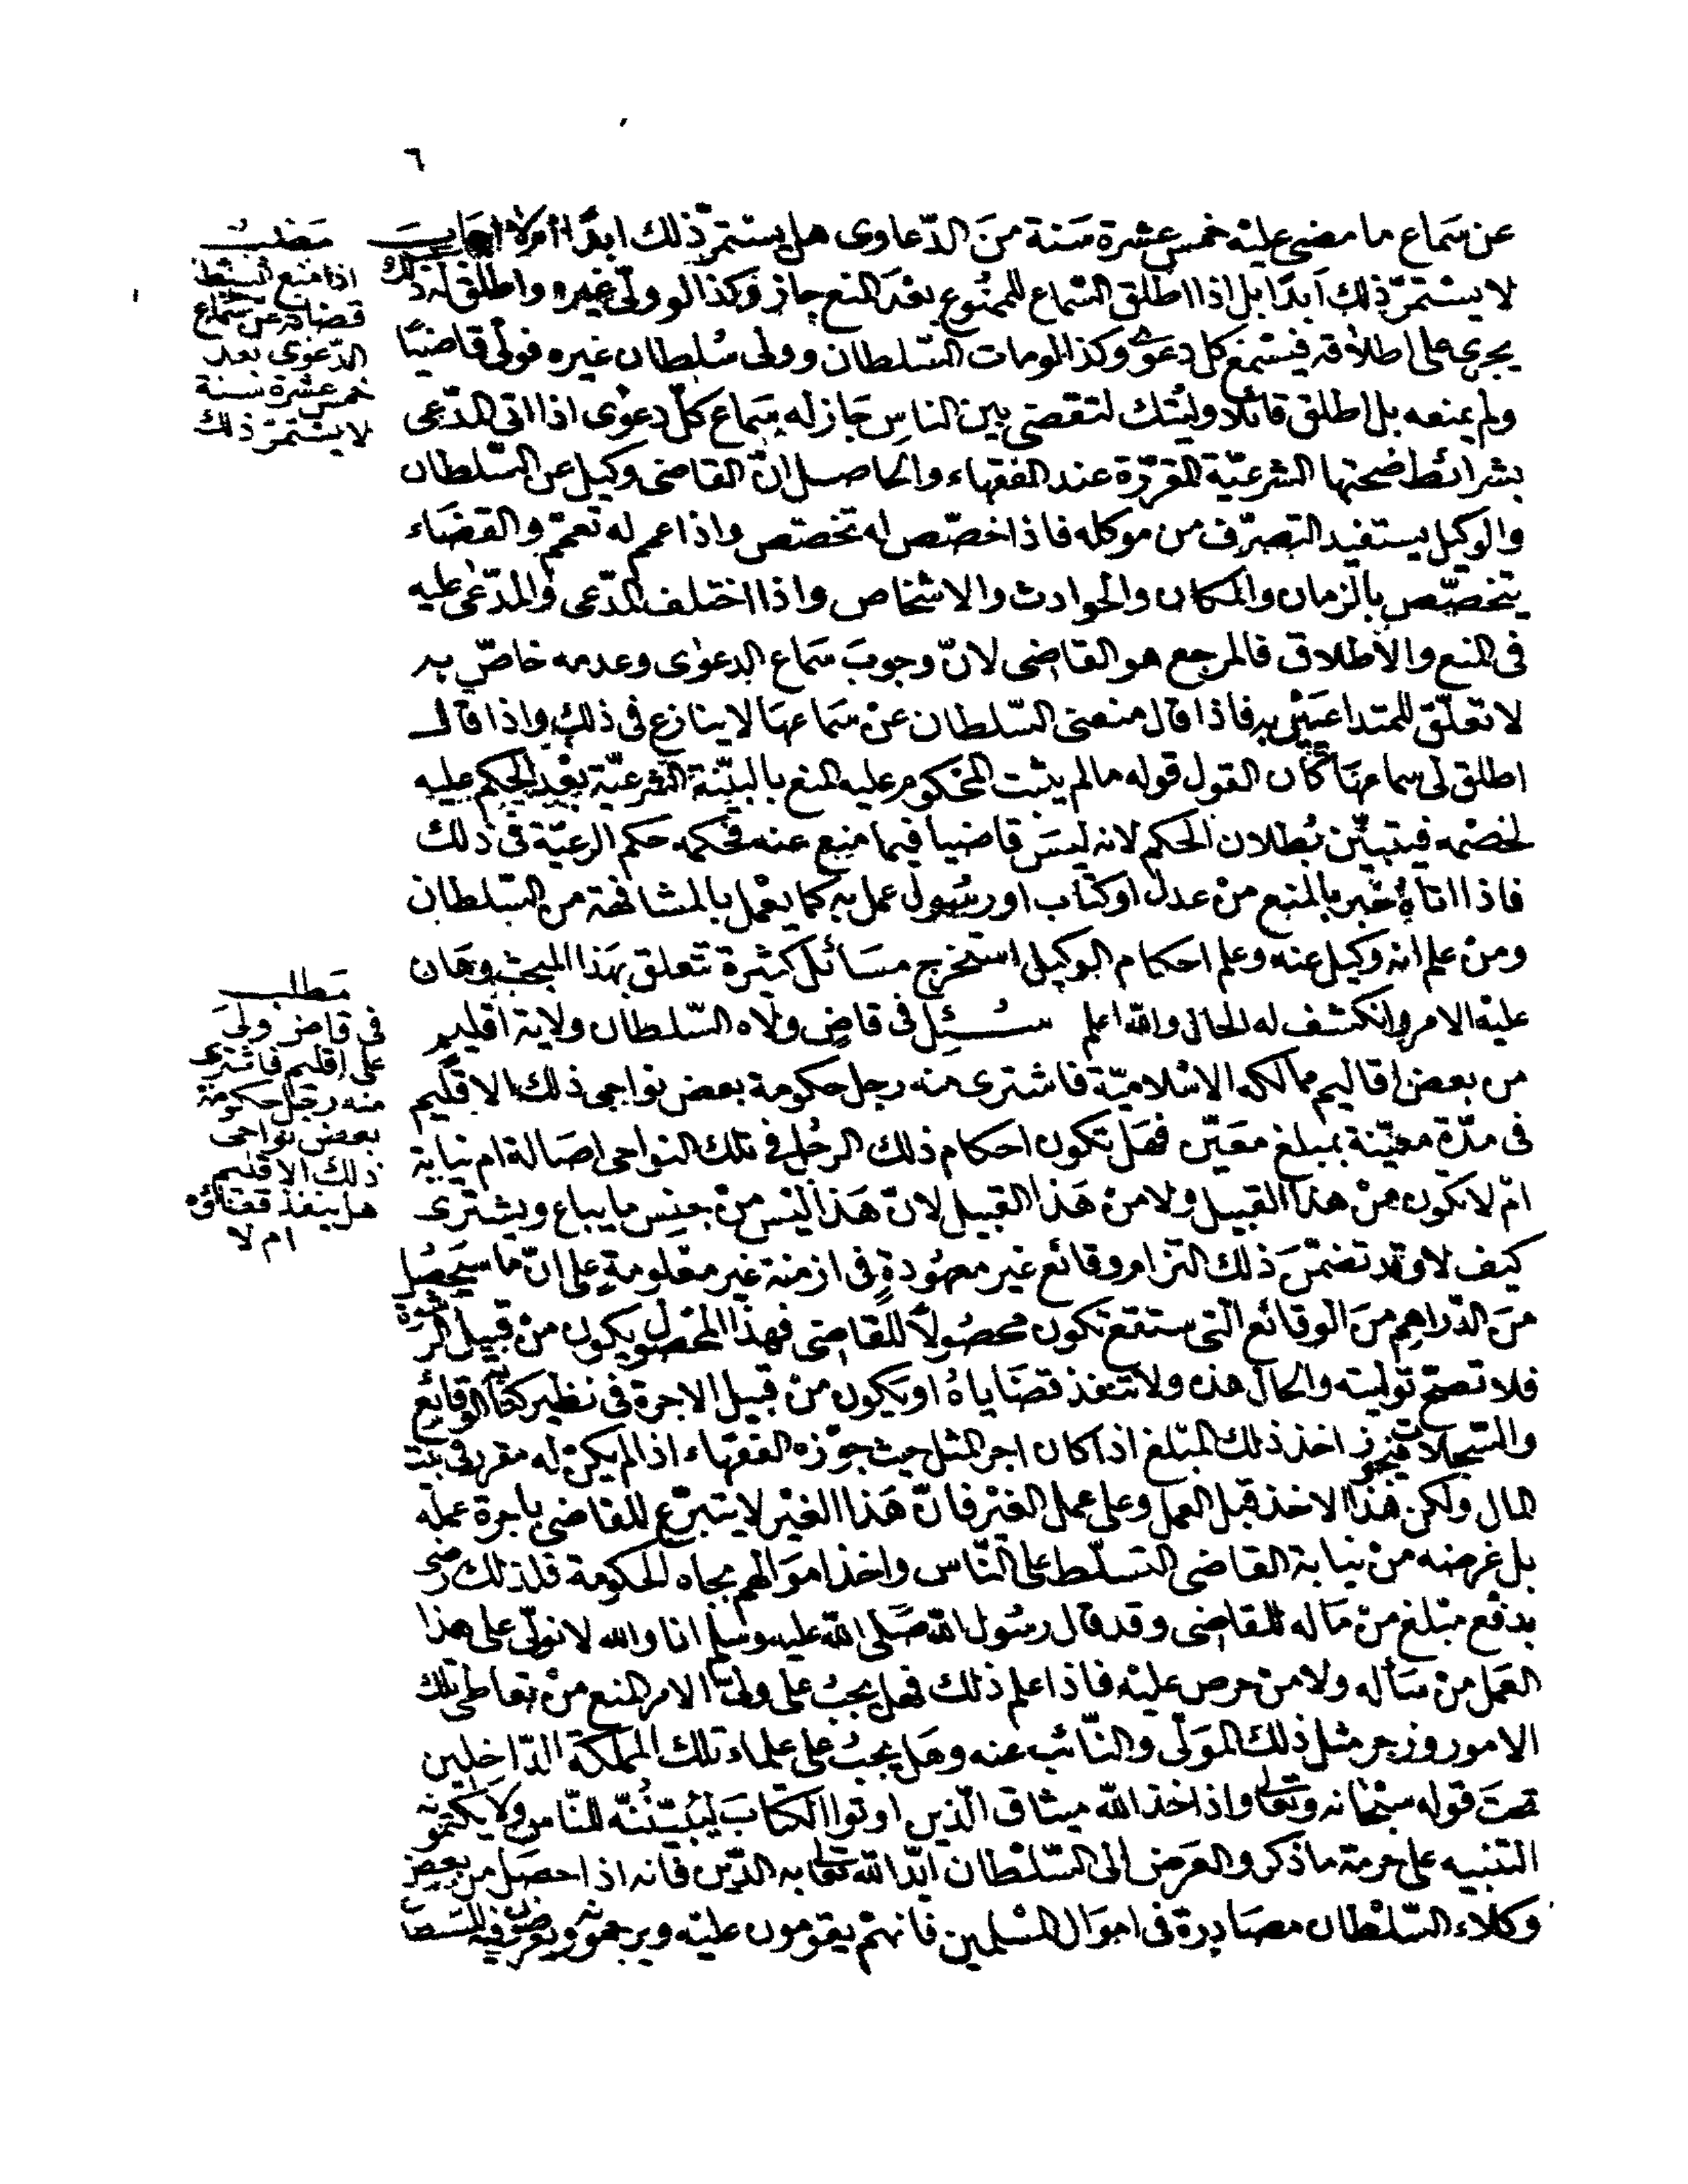 ٦
عن سماع ما مضى عليه خمس عشرة سنة من الدعاوى هل يستمر ذلك ابدا ام لا اجاب
لا يستمر ذلك ابدا بل اذا اطلق السماع للممنوع بعد المنع جاز وكذا لو ولى غيره واطلق له ذلك
يجرى على اطلاقه فيسمع كل دعوى وكذا لو مات السلطان وولى سلطان غيره فولى قاضيا
ولم يمنعه بل اطلق قائلا وليتك لتقضى بين الناس جاز له سماع كل دعوى اذا اتى المدعى
بشرائط صحتها الشرعية المقررة عند الفقهاء والحاصل ان القاضى وكيل عن السلطان
والوكيل يستفيد التصرف من موكله فاذا خصص له تخصص واذا عمم له تعمم والقضاء
يتخصص بالزمان والمكان والحوادث والاشخاص واذا اختلف المدعى والمدعى عليه
فى المنع والاطلاق فالمرجع هو القاضى لان وجوب سماع الدعوى وعدمه خاص به
لا تعلق للمتداعيين به فاذا قال منعنى السلطان عن سماعها لا ينازع فى ذلك واذا قال
اطلق لى سماعها كان القول قوله ما لم يثبت المحكوم عليه المنع بالبينة الشرعية بعد الحكم عليه
لخصمه فيتبين بطلان الحكم لانه ليس قاضيا فيما منع عنه فحكمه حكم الرعية فى ذلك
فاذا اتاه خبر بالمنع من عدل او كتاب او رسول عمل به كما يعمل بالمشافهة من السلطان
ومن علم انه وكيل عنه وعلم احكام الوكيل استخرج مسائل كثيرة تتعلق بهذا المبحث وهان
عليه الامر وانكشف له الحال والله اعلم سئل فى قاض ولاه السلطان ولاية اقليم
من بعض اقاليم ممالكه الاسلامية فاشترى منه رجل حكومة بعض نواحى ذلك الاقليم
فى مدة معينة بمبلغ معين فهل تكون احكام ذلك الرجل فى تلك النواحى اصالة ام نيابة
ام لا تكون من هذا القبيل ولا من هذا القبيل لان هذا ليس من جنس ما يباع ويشترى
كيف لا وقد تضمن ذلك التزام وقائع غير معهودة فى ازمنة غير معلومة على ان ما سيحصل
من الدراهم من الوقائع التى ستقع تكون محصولا للقاضى فهذا المحصول يكون من قبيل الرشوة
فلا تصح توليته والحال هذه ولا تنفذ قضاياه او يكون من قبيل الاجرة فى نظير كتابة الوقائع
والسجلات فيجوز اخذ ذلك المبلغ اذا كان اجر المثل حيث جوزه الفقهاء اذا لم يكن له مقرر فى بيت
المال ولكن هذا الاخذ قبل العمل وعلى عمل الغير فان هذا الغير لا يتبرع للقاضى باجرة عمله
بل غرضه من نيابة القاضى التسلط على الناس واخذ اموالهم بجاه الحكومة فلذلك رضى
بدفع مبلغ من ماله للقاضى وقد قال رسول الله صلى الله عليه وسلم انا والله لا نولى على هذا
العمل من سأله ولا من حرص عليه فاذا علم ذلك فهل يجب على ولى الامر المنع من تعاطى تلك
الامور وزجر مثل ذلك المولى والنائب عنه وهل يجب على علماء تلك المملكة الداخلين
تحت قوله سبحانه وتعالى واذ اخذ الله ميثاق الذين اوتوا الكتاب ليبيننه للناس ولا يكتمونه
التنبيه على حرمة ما ذكر والعرض الى السلطان ايد الله تعالى به الدين فانه اذا حصل من بعض
وكلاء السلطان مصادرة فى اموال المسلمين فانهم يقومون عليه ويرجمونه ويعرضون فيه للسلطان
مطلب
اذا منع السلطان
قضاته عن سماع
الدعوى بعد
خمس عشرة سنة
لا يستمر ذلك
مطلب
فى قاض ولى
على اقليم فاشترى
منه رجل حكومة
بعض نواحى
ذلك الاقليم
هل ينفذ قضاؤه
ام لا